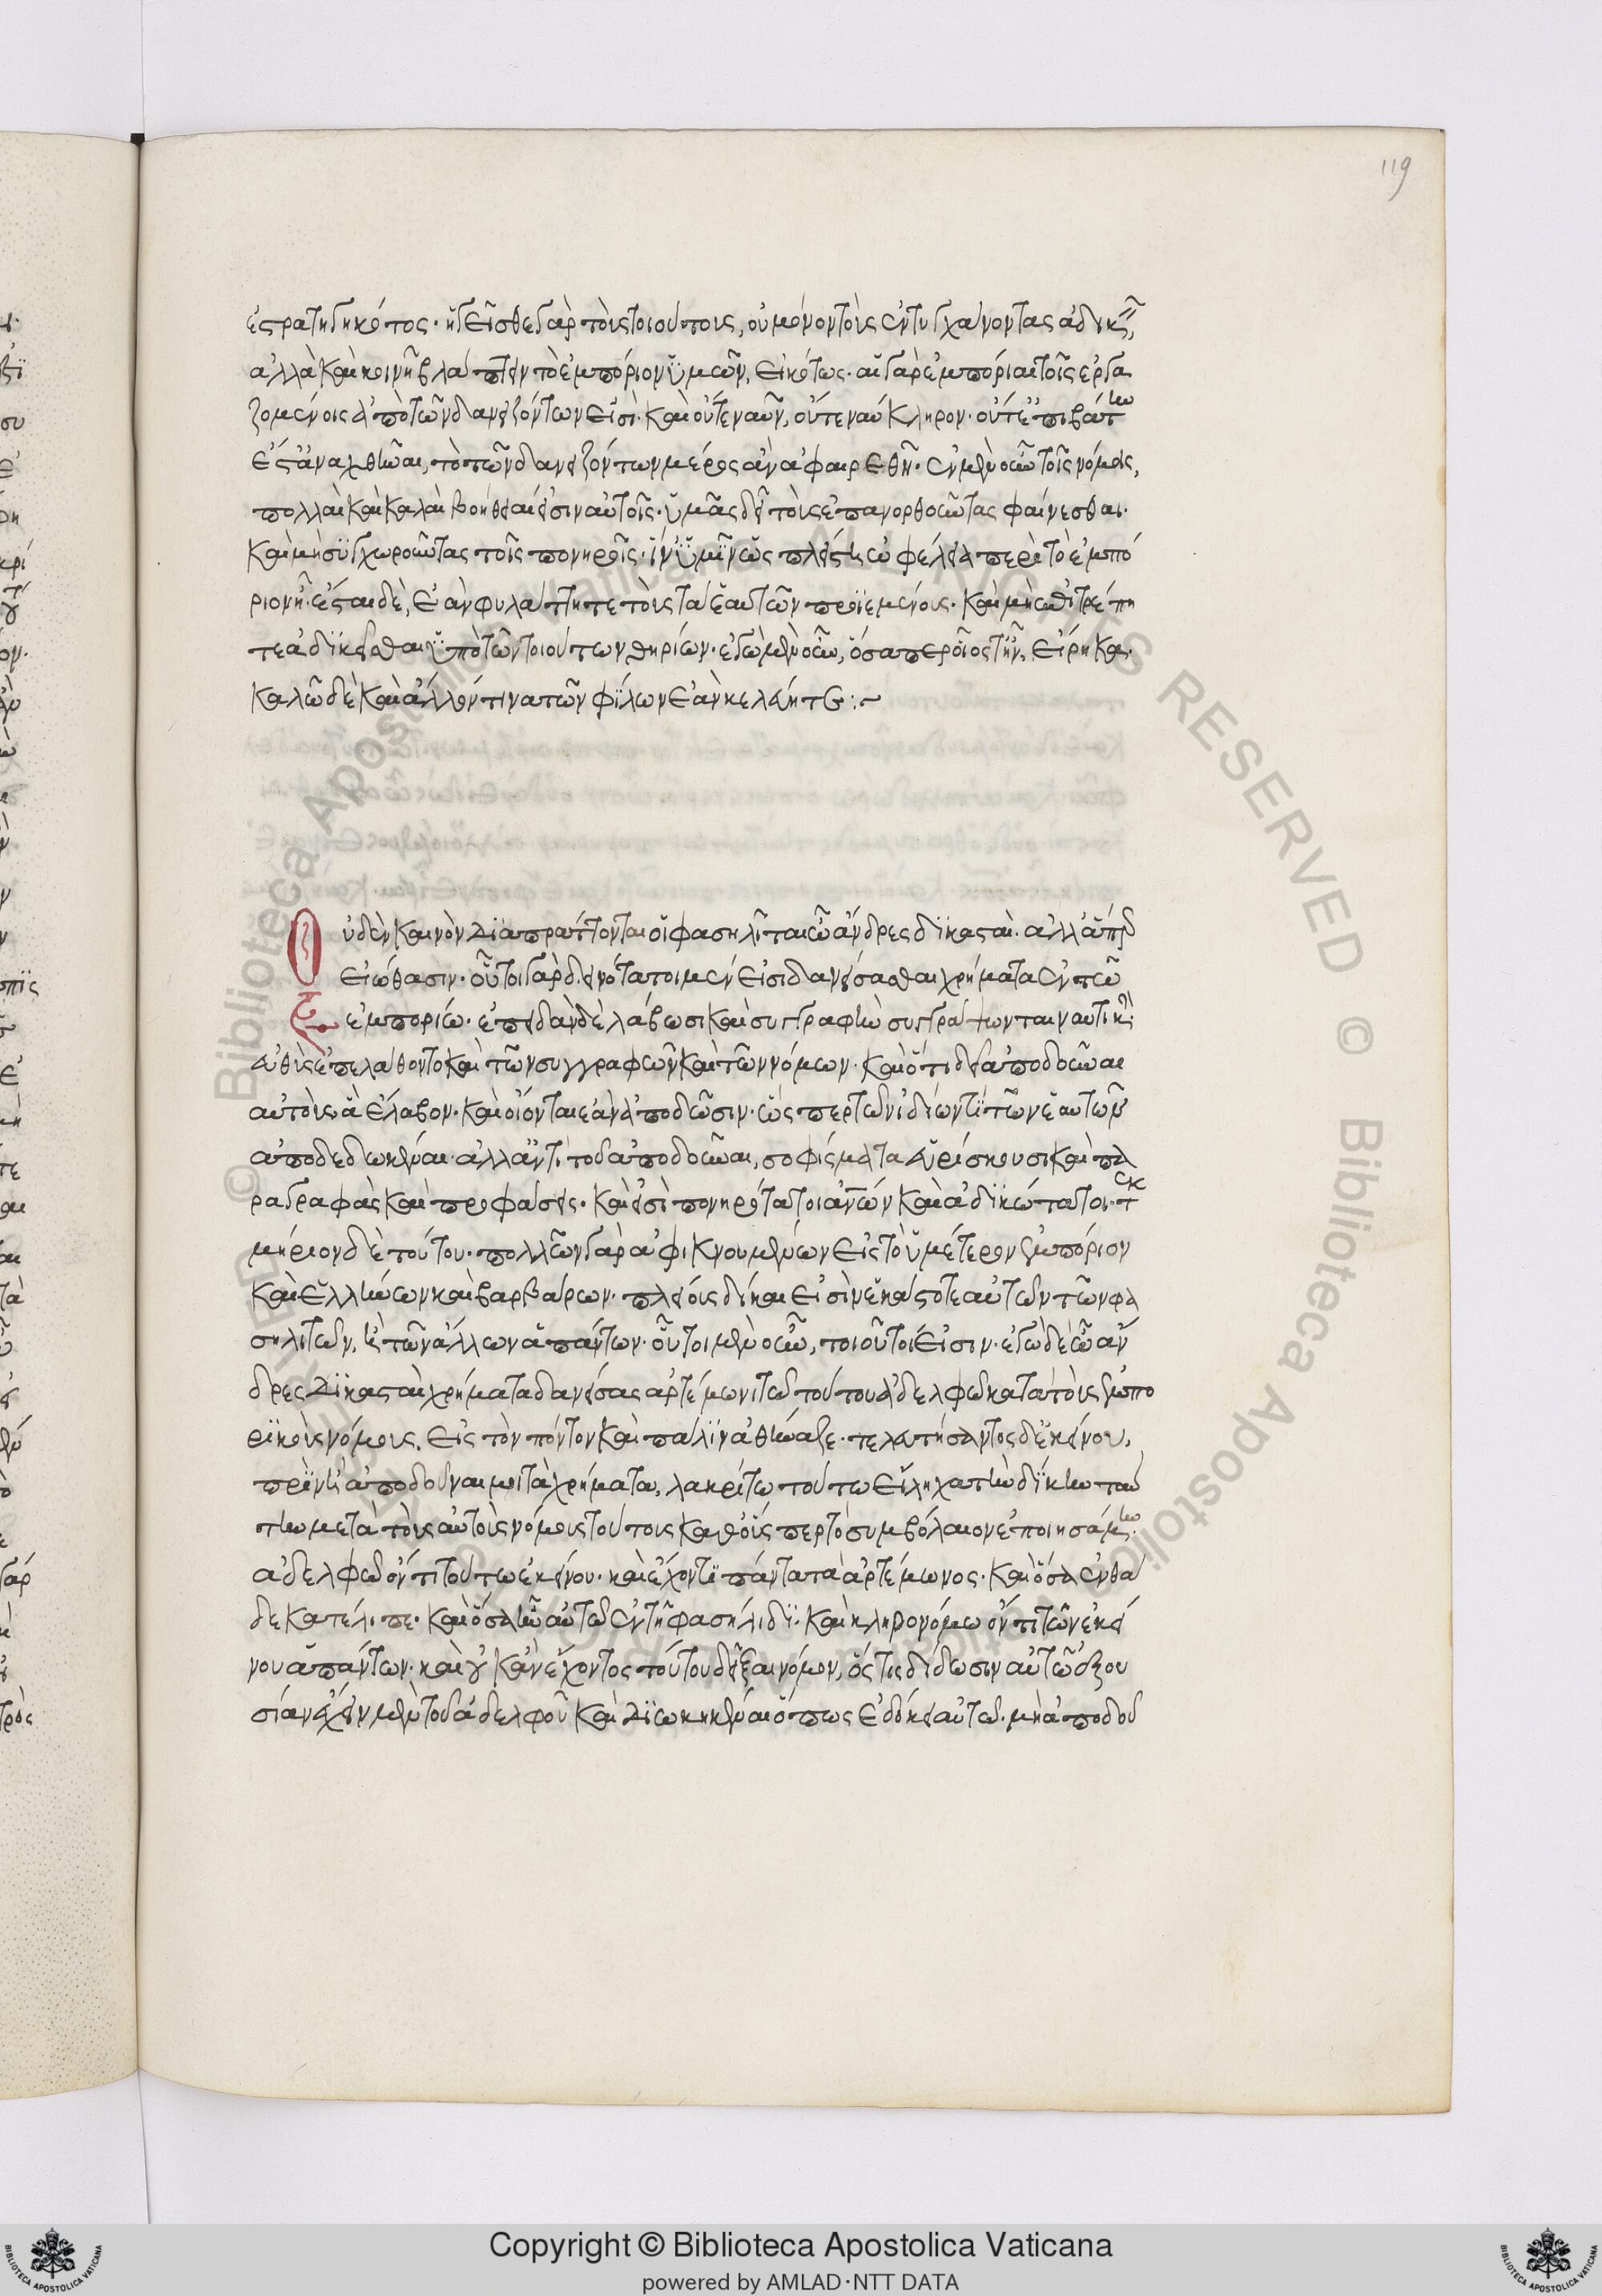 119
ἐστρατηγηκότος· ἡγεῖσθε γὰρ τοὺς τοιούτους, οὐ μόνον τοὺς ἐντυγχάνοντας ἀδικεῖν,
ἀλλὰ καὶ κοινῇ βλάπτειν τὸ ἐμπόριον ὑμῶν, εἰκότως· αἱ γὰρ ἐμπορίαι τοῖς ἐργα
ζομένοις ἀπὸ τῶν δανειζόντων εἰσί· καὶ οὔτε ναῦν, οὔτε ναύκληρον· οὔτ' ἐπιβάτην
ἔστ' ἀναχθῆναι, τὸ τῶν δανειζόντων μέρος ἂν ἀφαιρεθῇ· ἐν μὲν οὖν τοῖς νόμοις,
πολλαὶ καὶ καλαὶ βοήθειαί εἰσιν αὐτοῖς· ὑμᾶς δεῖ τοὺς ἐπανορθοῦντας φαίνεσθαι·
καὶ μὴ συγχωροῦντας τοῖς πονηροῖς· ἵν' ὑμῖν ὡς πλείστη ὠφέλεια περὶ τὸ ἐμπό
ριον ᾖ· ἔσται δὲ, ἐὰν φυλάττητε τοὺς τὰ ἑαυτῶν προϊεμένους· καὶ μὴ ἐπιτρέπη
τε ἀδικεῖσθαι ὑπὸ τῶν τοιούτων θηρίων· ἐγὼ μὲν οὖν, ὅσα περ οἷός τ' ἦν, εἴρηκα·
καλῶ δὲ καὶ ἄλλον τινὰ τῶν φίλων ἐὰν κελεύητε:~
Οὐδὲν καινὸν διαπράττονται οἱ φασηλῖται ὦ ἄνδρες δικασταί· ἀλλ' ἅπερ
εἰώθασιν· οὗτοι γὰρ δεινότατοι μέν εἰσι δανείσασθαι χρήματα ἐν τῶ
ἐμπορίω· ἐπειδὰν δὲ λάβωσι καὶ συγγραφὴν συγγράψωνται ναυτικὴν·
εὐθὺς ἐπελάθοντο καὶ τῶν συγγραφῶν καὶ τῶν νόμων· καὶ ὅτι δεῖ ἀποδοῦναι
αὐτοὺς ἃ ἔλαβον· καὶ οἴονται ἐὰν ἀποδῶσιν· ὥς περ τῶν ἰδίων τι τῶν ἑαυτῶν
ἀποδεδωκέναι· ἀλλ' ἀντὶ τοῦ ἀποδοῦναι, σοφίσματα εὑρίσκουσι καὶ πα
ραγραφὰς καὶ προφάσεις· καὶ εἰσὶ πονηρότατοι ἀνθρώπων καὶ ἀδικώτατοι· τεκ
μήριον δὲ τούτου· πολλῶν γὰρ ἀφικνουμένων εἰς τὸ ὑμέτερον ἐμπόριον
καὶ ἑλλήνων καὶ βαρβάρων· πλείους δίκαι εἰσὶν ἑκάστοτε αὐτῶν τῶν φα
σηλιτῶν, ἢ τῶν ἄλλων ἁπάντων· οὗτοι μὲν οὖν, τοιοῦτοί εἰσιν· ἐγὼ δὲ ὦ ἄν
δρες δικασταὶ χρήματα δανείσας ἀρτέμωνι τῶ τούτου ἀδελφῶ κατὰ τοὺς ἐμπο
ρικοὺς νόμους, εἰς τὸν πόντον καὶ πάλιν ἀθήναζε· τελευτήσαντος δ' ἐκείνου,
πρὶν ἢ ἀποδοῦναι μοι τὰ χρήματα, λακρίτω τούτω εἴληχα τὴν δίκην ταύ
την μετὰ τοὺς αὐτοὺς νόμους τούτους καθ' οὕς περ τὸ συμβόλαιον ἐποιησάμην·
ἀδελφῶ ὄντι τούτω ἐκείνου· καὶ ἔχοντι πάντα τὰ ἀρτέμωνος· καὶ ὅσα ἐνθά
δε κατέλιπε· καὶ ὅσα ἦν αὐτῶ ἐν τῇ φασήλιδι· καὶ κληρονόμω ὄντι τῶν ἐκεί
νου ἁπάντων· καὶ οὐκ ἂν ἔχοντος τούτου δεῖξαι νόμον, ὅστις δίδωσιν αὐτῶ ἐξου
σίαν ἔχειν μὲν τὰ τοῦ ἀδελφοῦ καὶ διωκηκέναι ὅπως ἐδόκει αὐτῶ· μὴ ἀποδοῦ
Copyright © Biblioteca Apostolica Vaticana
powered by AMLAD·NTT DATA